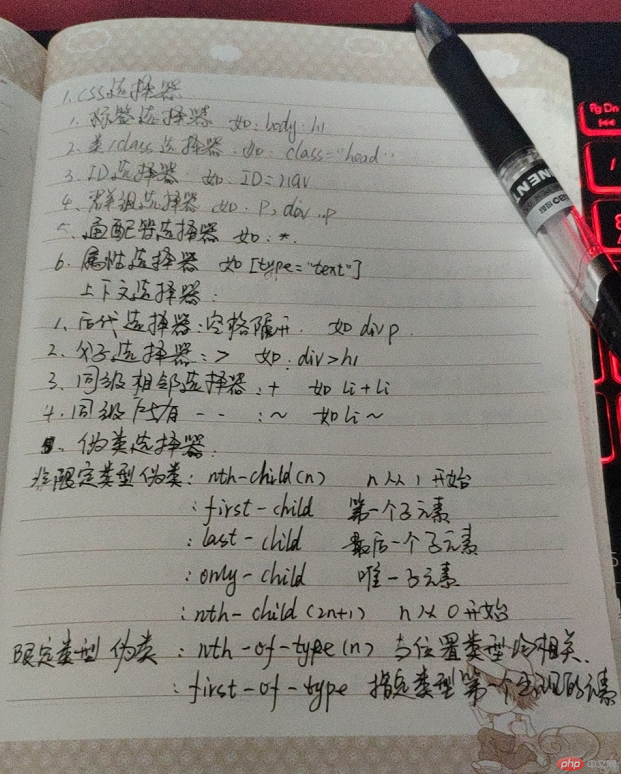 1. CSS选择器
1. 标签选择器 如: body. h1
2. 类/class选择器. 如: class="head"
3. ID选择器 如: ID=nav
4. 群组选择器 如. P, div .p
5. 通配符选择器 如: *.
6. 属性选择器 如 [type="text"]
上下文选择器:
1. 后代选择器: 空格隔开. 如 div p.
2. 父子选择器: > 如: div>h1
3. 同级相邻选择器: + 如 li+li
4. 同级所有 -- : ~ 如 li ~
伪类选择器:
非限定类型伪类: nth-child(n) n从1开始
: first-child 第一个子元素
: last-child 最后一个子元素
: only-child 唯一子元素
: nth-child(2n+1) n从0开始
限定类型伪类: nth-of-type(n) 与位置类型 相关.
: first-of-type 指定类型第一个出现的元素
NENT
Pg Dn
php 中文网